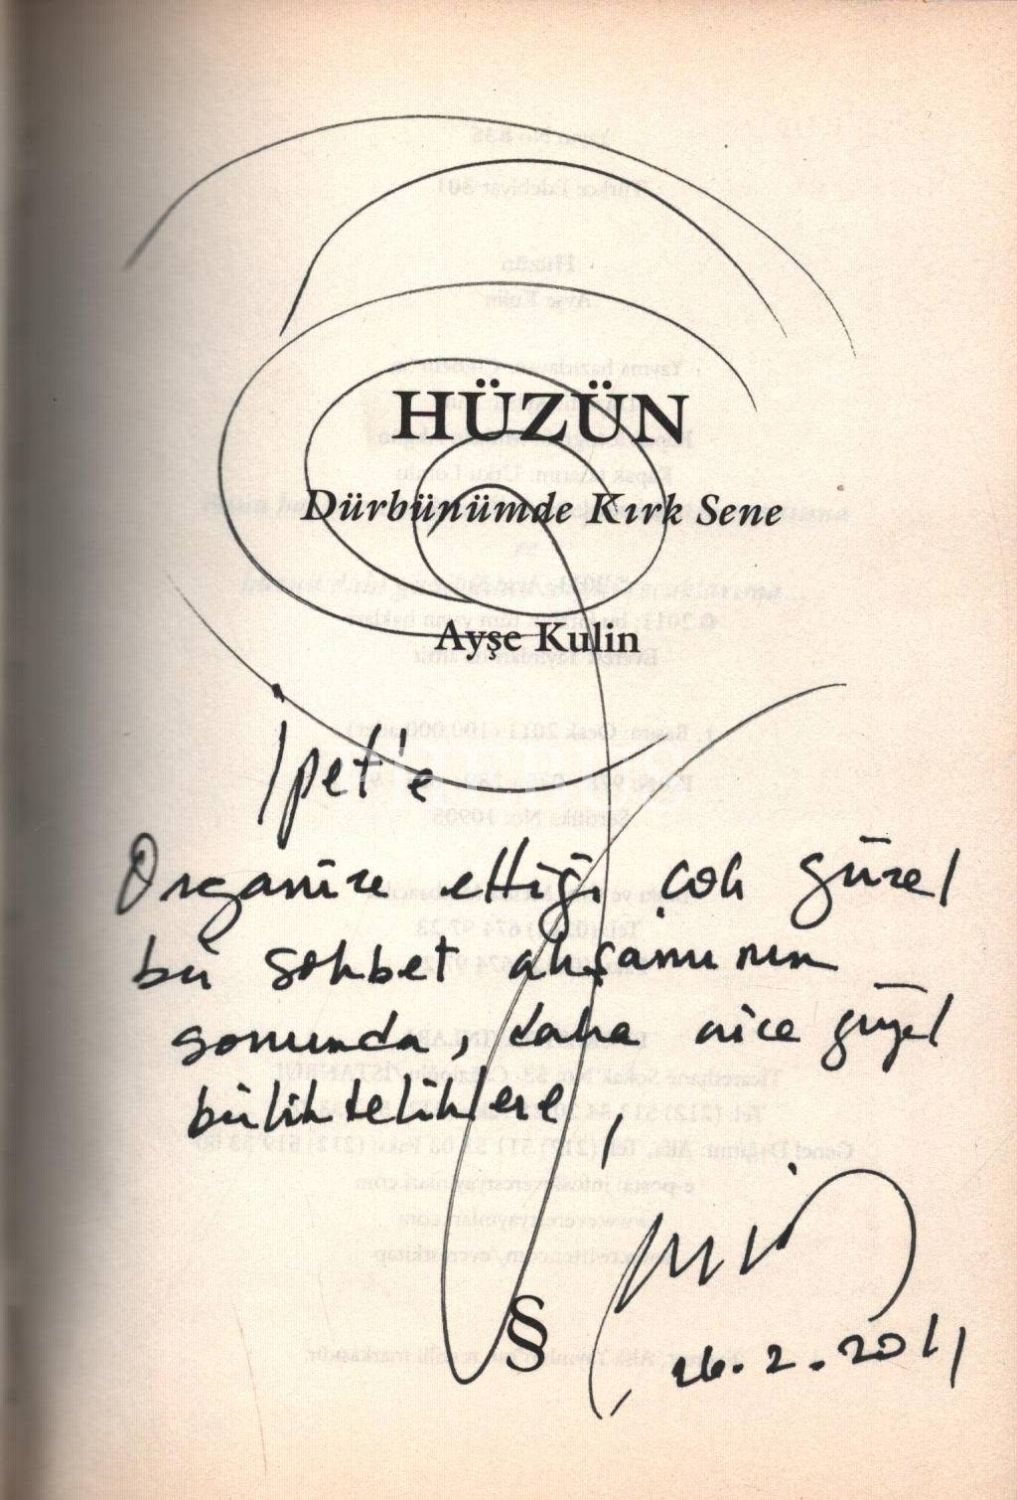 HÜZÜN
Dürbünümde Kırk Sene
Ayşe Kulin
İpet'e
Organize ettiği çok güzel
bu sohbet akşamının
sonunda, daha nice güzel
birlikteliklere,
§
26.2.2011